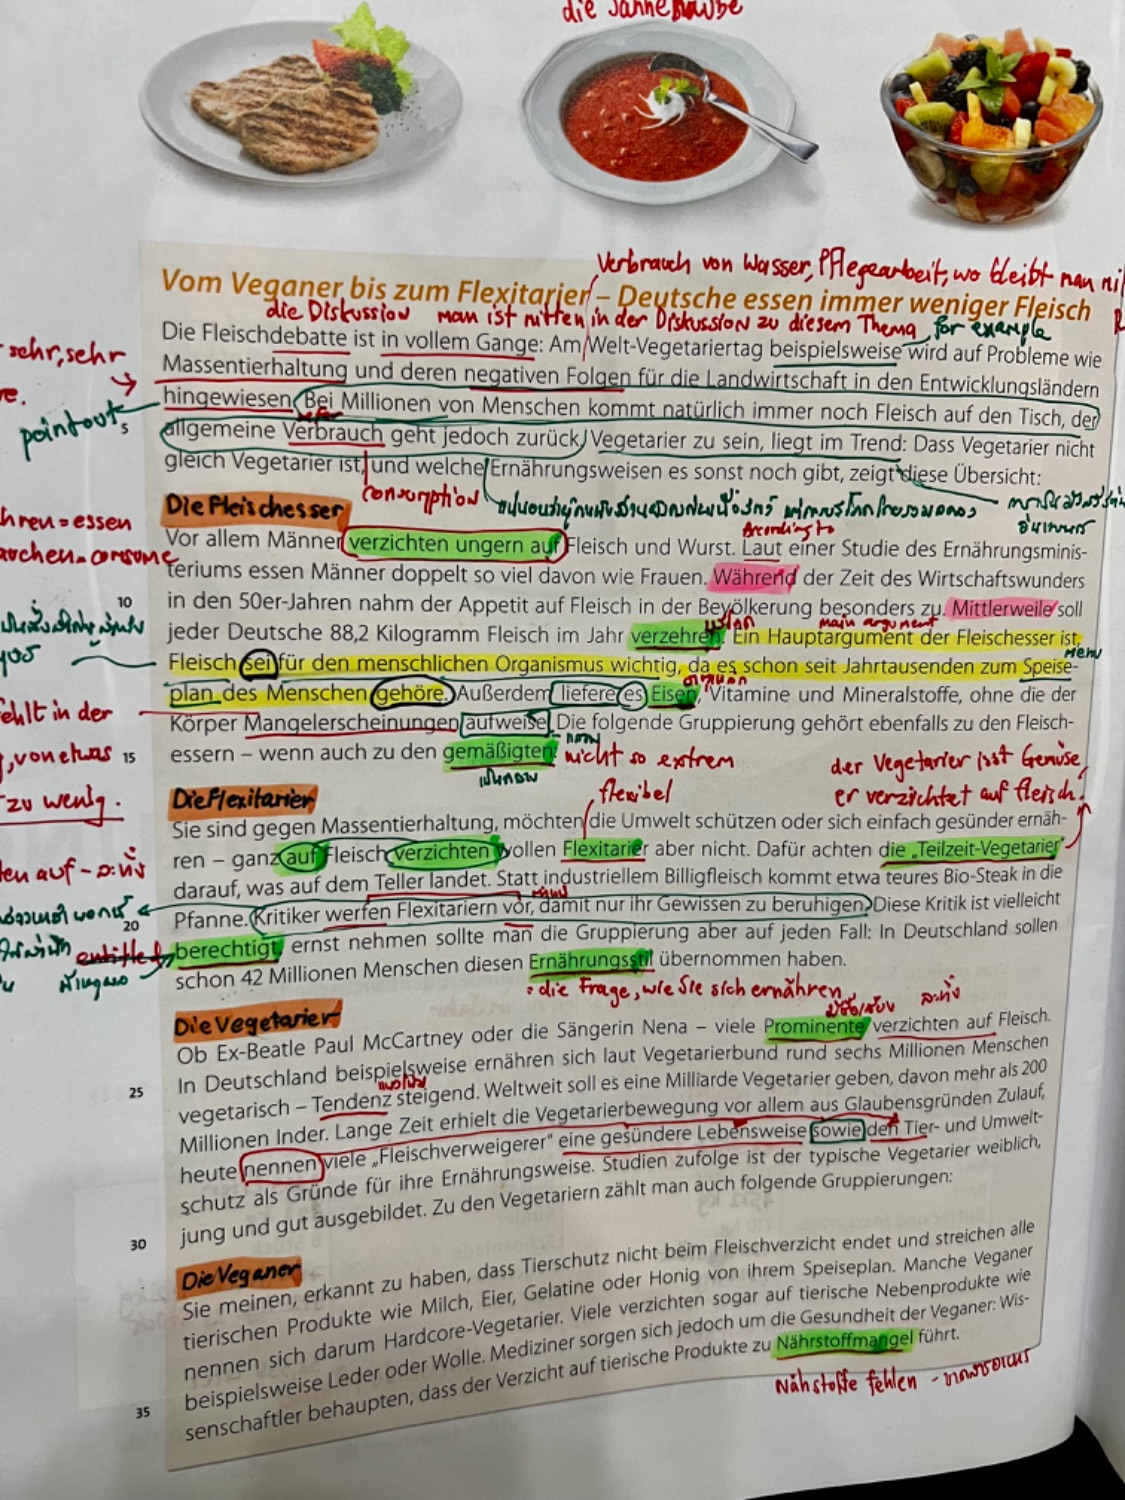 die Sahnehaube
Verbrauch von Wasser, Pflegearbeit, wo bleibt man
Vom Veganer bis zum Flexitarier – Deutsche essen immer weniger Fleisch
die Diskussion man ist mitten in der Diskussion zu diesem Thema for example
Die Fleischdebatte ist in vollem Gange: Am Welt-Vegetariertag beispielsweise wird auf Probleme wie
sehr, sehr
Massentierhaltung und deren negativen Folgen für die Landwirtschaft in den Entwicklungsländern
hingewiesen. Bei Millionen von Menschen kommt natürlich immer noch Fleisch auf den Tisch, der
point out
5
allgemeine Verbrauch geht jedoch zurück. Vegetarier zu sein, liegt im Trend: Dass Vegetarier nicht
gleich Vegetarier ist, und welche Ernährungsweisen es sonst noch gibt, zeigt diese Übersicht:
consumption
Die Fleischesser
hren = essen
According to
Vor allem Männer verzichten ungern auf Fleisch und Wurst. Laut einer Studie des Ernährungsminis-
teriums essen Männer doppelt so viel davon wie Frauen. Während der Zeit des Wirtschaftswunders
10
in den 50er-Jahren nahm der Appetit auf Fleisch in der Bevölkerung besonders zu. Mittlerweile soll
main argument
jeder Deutsche 88,2 Kilogramm Fleisch im Jahr verzehren. Ein Hauptargument der Fleischesser ist,
menu
Fleisch sei für den menschlichen Organismus wichtig, da es schon seit Jahrtausenden zum Speise-
plan des Menschen gehöre. Außerdem liefere es Eisen, Vitamine und Mineralstoffe, ohne die der
fehlt in der
Körper Mangelerscheinungen aufweise. Die folgende Gruppierung gehört ebenfalls zu den Fleisch-
, von etwas
15
essern – wenn auch zu den gemäßigten.
nicht so extrem
der Vegetarier isst Gemüse
zu wenig.
er verzichtet auf Fleisch.
flexibel
Die Flexitarier
Sie sind gegen Massentierhaltung, möchten die Umwelt schützen oder sich einfach gesünder ernäh-
ren – ganz auf Fleisch verzichten wollen Flexitarier aber nicht. Dafür achten die „Teilzeit-Vegetarier“
darauf, was auf dem Teller landet. Statt industriellem Billigfleisch kommt etwa teures Bio-Steak in die
Pfanne. Kritiker werfen Flexitariern vor, damit nur ihr Gewissen zu beruhigen. Diese Kritik ist vielleicht
20
entitled
berechtigt, ernst nehmen sollte man die Gruppierung aber auf jeden Fall: In Deutschland sollen
schon 42 Millionen Menschen diesen Ernährungsstil übernommen haben.
: die Frage, wie Sie sich ernähren
Die Vegetarier
Ob Ex-Beatle Paul McCartney oder die Sängerin Nena – viele Prominente verzichten auf Fleisch.
In Deutschland beispielsweise ernähren sich laut Vegetarierbund rund sechs Millionen Menschen
25
vegetarisch – Tendenz steigend. Weltweit soll es eine Milliarde Vegetarier geben, davon mehr als 200
Millionen Inder. Lange Zeit erhielt die Vegetarierbewegung vor allem aus Glaubensgründen Zulauf,
heute nennen viele „Fleischverweigerer“ eine gesündere Lebensweise sowie den Tier- und Umwelt-
schutz als Gründe für ihre Ernährungsweise. Studien zufolge ist der typische Vegetarier weiblich,
30
jung und gut ausgebildet. Zu den Vegetariern zählt man auch folgende Gruppierungen:
Die Veganer
Sie meinen, erkannt zu haben, dass Tierschutz nicht beim Fleischverzicht endet und streichen alle
tierischen Produkte wie Milch, Eier, Gelatine oder Honig von ihrem Speiseplan. Manche Veganer
nennen sich darum Hardcore-Vegetarier. Viele verzichten sogar auf tierische Nebenprodukte wie
beispielsweise Leder oder Wolle. Mediziner sorgen sich jedoch um die Gesundheit der Veganer: Wis-
35
senschaftler behaupten, dass der Verzicht auf tierische Produkte zu Nährstoffmangel führt.
Nähstoffe fehlen -